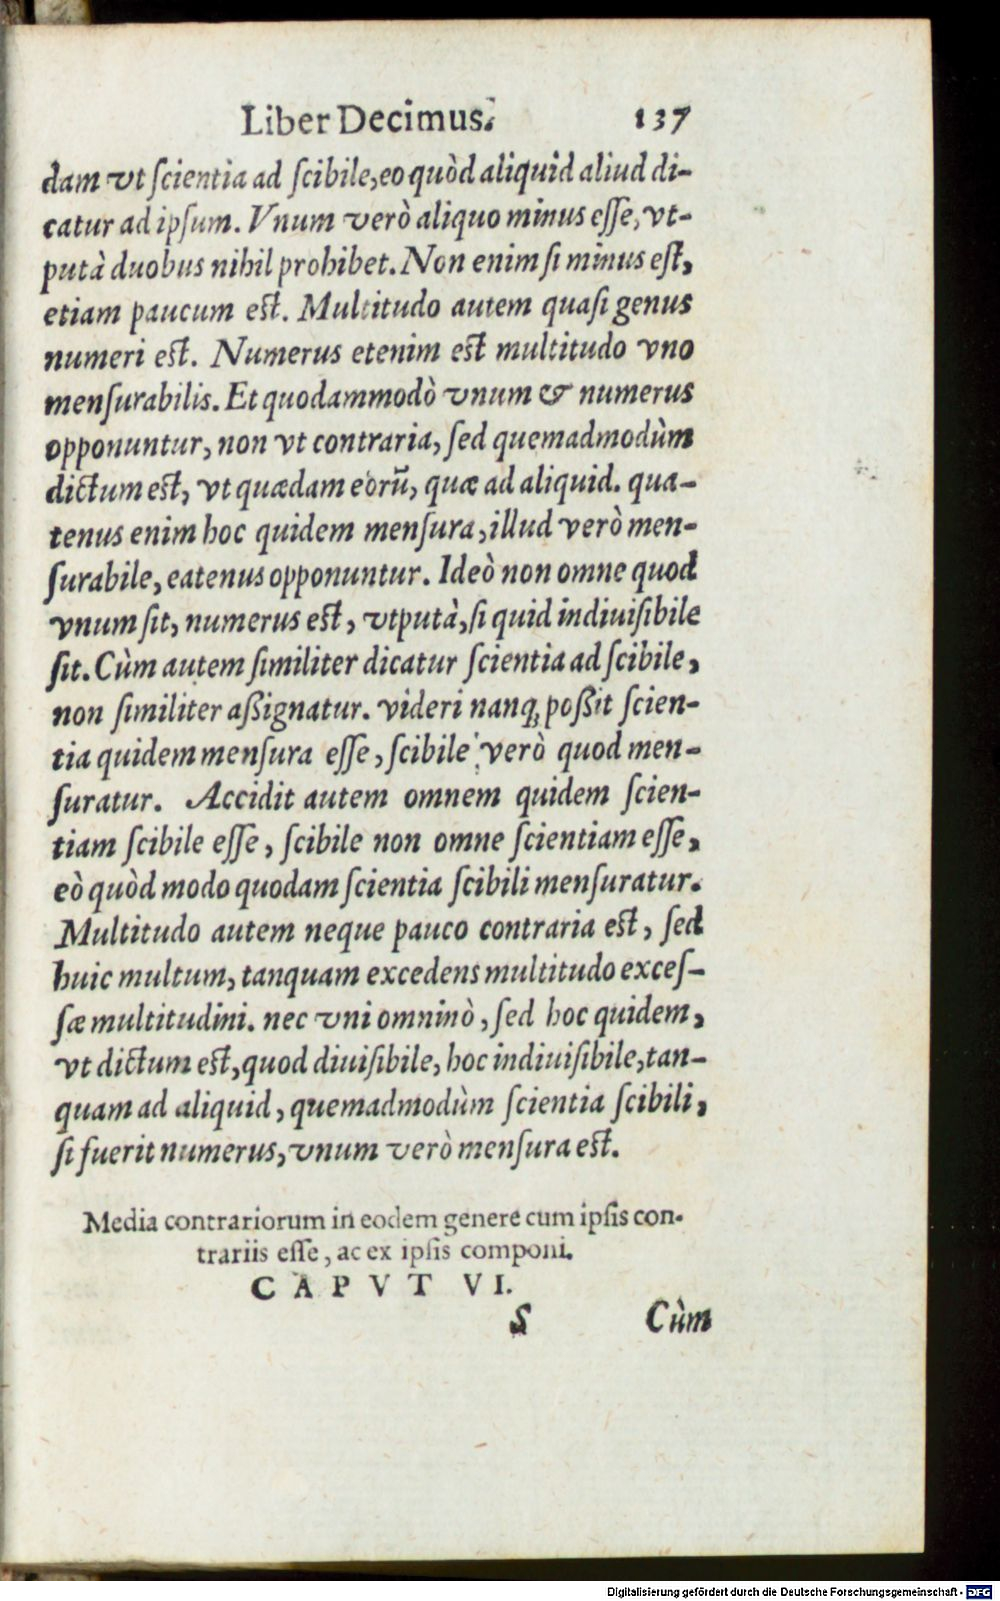 Liber Decimus. 137
dam vt ſcientia ad ſcibile, eo quòd aliquid aliud di-
catur ad ipſum. Vnum verò aliquo minus eſſe, vt-
putà duobus nihil prohibet. Non enim ſi minus eſt,
etiam paucum eſt. Multitudo autem quaſi genus
numeri eſt. Numerus etenim eſt multitudo vno
menſurabilis. Et quodammodò vnum & numerus
opponuntur, non vt contraria, ſed quemadmodùm
dictum eſt, vt quædam eorũ, quæ ad aliquid. qua-
tenus enim hoc quidem menſura, illud verò men-
ſurabile, eatenus opponuntur. Ideò non omne quod
vnum ſit, numerus eſt, vtputà, ſi quid indiuiſibile
ſit. Cùm autem ſimiliter dicatur ſcientia ad ſcibile,
non ſimiliter aßignatur. videri nanq; poßit ſcien-
tia quidem menſura eſſe, ſcibile verò quod men-
ſuratur. Accidit autem omnem quidem ſcien-
tiam ſcibile eſſe, ſcibile non omne ſcientiam eſſe,
eò quòd modo quodam ſcientia ſcibili menſuratur.
Multitudo autem neque pauco contraria eſt, ſed
huic multum, tanquam excedens multitudo exceſ-
ſæ multitudini. nec vni omninò, ſed hoc quidem,
vt dictum eſt, quod diuiſibile, hoc indiuiſibile, tan-
quam ad aliquid, quemadmodùm ſcientia ſcibili,
ſi fuerit numerus, vnum verò menſura eſt.
Media contrariorum in eodem genere cum ipſis con-
trariis eſſe, ac ex ipſis componi.
CAPVT VI.
S Cùm
Digitalisierung gefördert durch die Deutsche Forschungsgemeinschaft - DFG